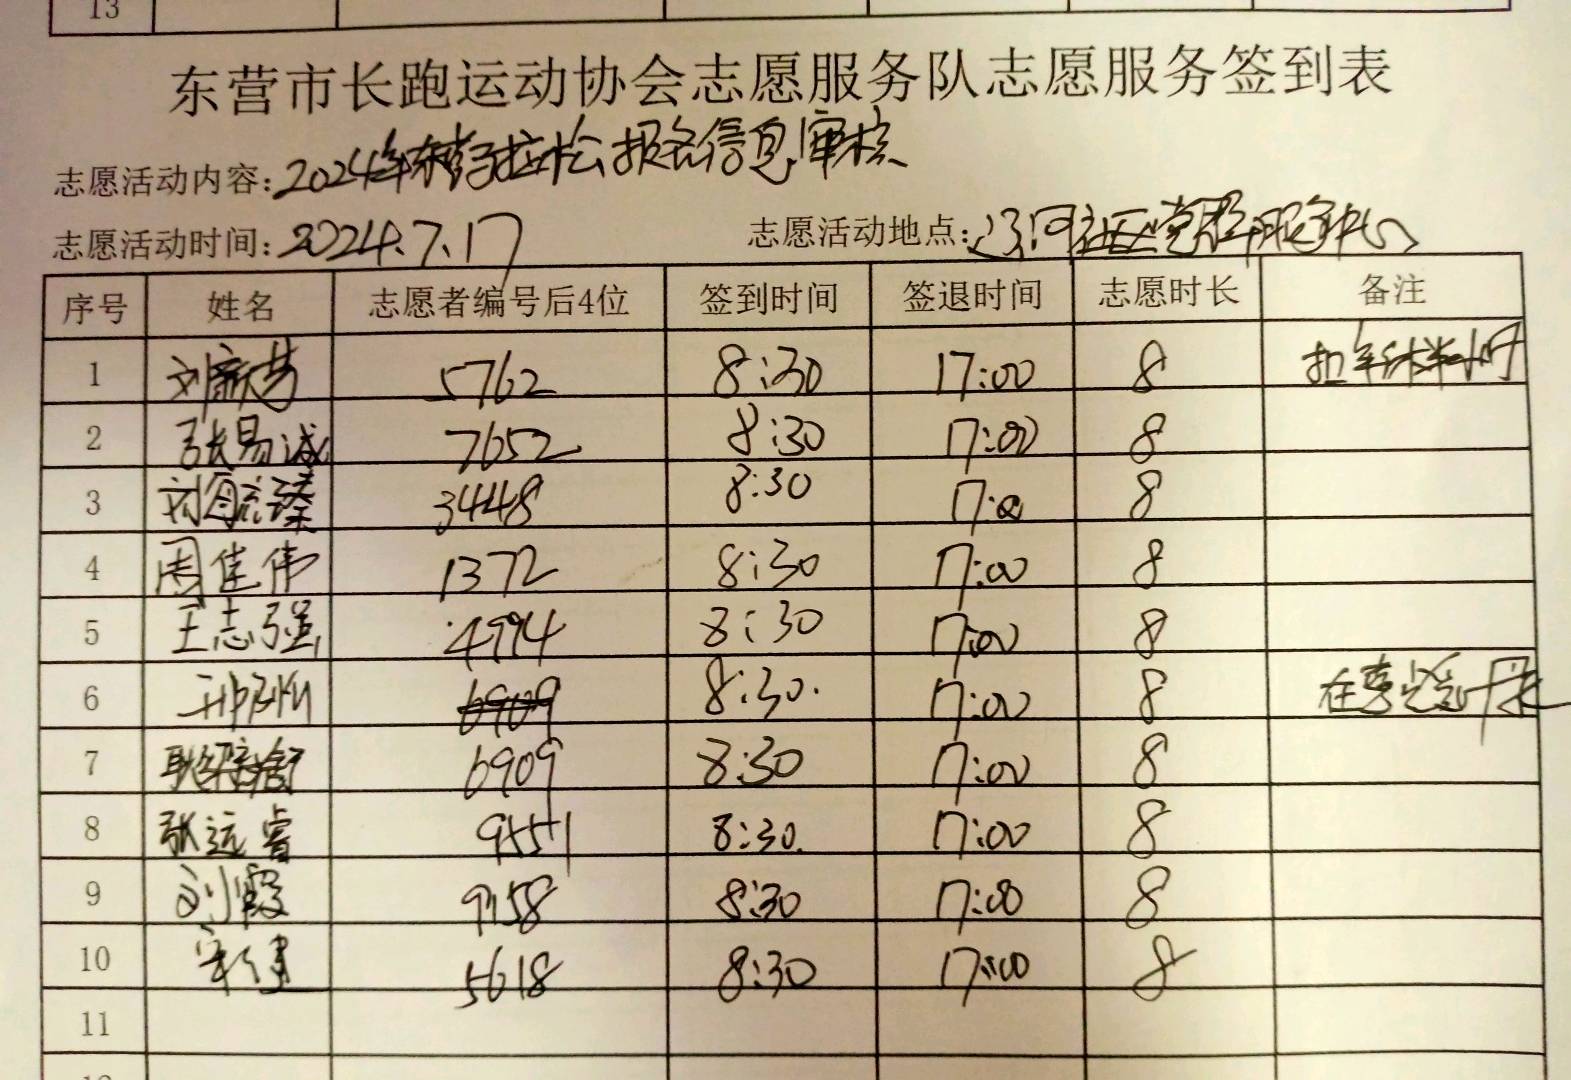 13
东营市长跑运动协会志愿服务队志愿服务签到表
志愿活动内容:2024年东营马拉松报名信息审核
志愿活动时间:2024.7.17 志愿活动地点:辽河社区党群服务中心
序号 姓名 志愿者编号后4位 签到时间 签退时间 志愿时长 备注
1 刘 5762 8:30 17:00 8
2 张易诚 7652 8:30 17:00 8
3 刘 3448 8:30 17:00 8
4 周佳伟 1372 8:30 17:00 8
5 王志强 4994 8:30 17:00 8
6 8:30. 17:00 8
7 耿 6909 8:30 17:00 8
8 张远睿 9551 8:30. 17:00 8
9 刘霞 9158 8:30 17:00 8
10 宋健 5618 8:30 17:00 8
11